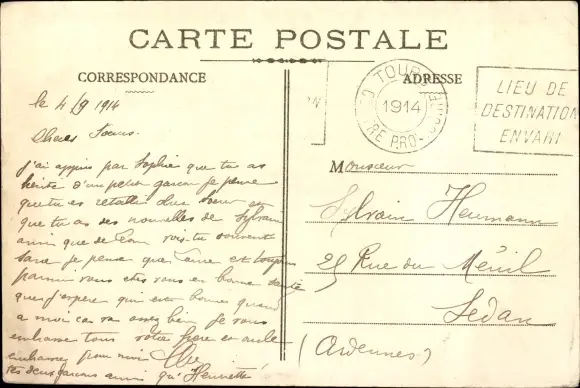 CARTE POSTALE
CORRESPONDANCE
ADRESSE
le 4/9 1914
Chères Soeurs.
j'ai appris par Sophie que tu as
hérité d'un petit garçon je pense
que tu es rétablie
que tu as des nouvelles de Sylvain
ainsi que de Léon vois-tu souvent
Sara je pense que
parmi vous êtes vous en bonne santé
que j'espère qui est bonne quand
a moi ca va assez bien je vous
embrasse tous votre frère et
embrasse pour moi
tes deux garçons ainsi qu'Henriette
TOURS
1914
LIEU DE
DESTINATION
ENVAHI
Monsieur
Sylvain Heumann
25 Rue du Ménil
Sedan
(Ardennes)